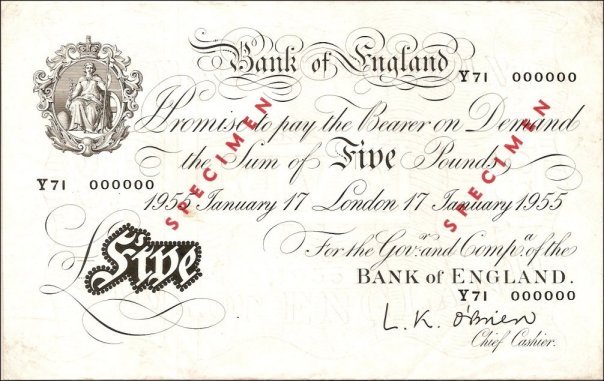 Bank of England
Y71 000000
I Promise to pay the Bearer on Demand
the Sum of Five Pounds
Y71 000000
1955 January 17 London 17 January 1955
SPECIMEN
SPECIMEN
£Five
For the Govr. and Compa. of the
BANK OF ENGLAND.
Y71 000000
L. K. O'Brien
Chief Cashier.